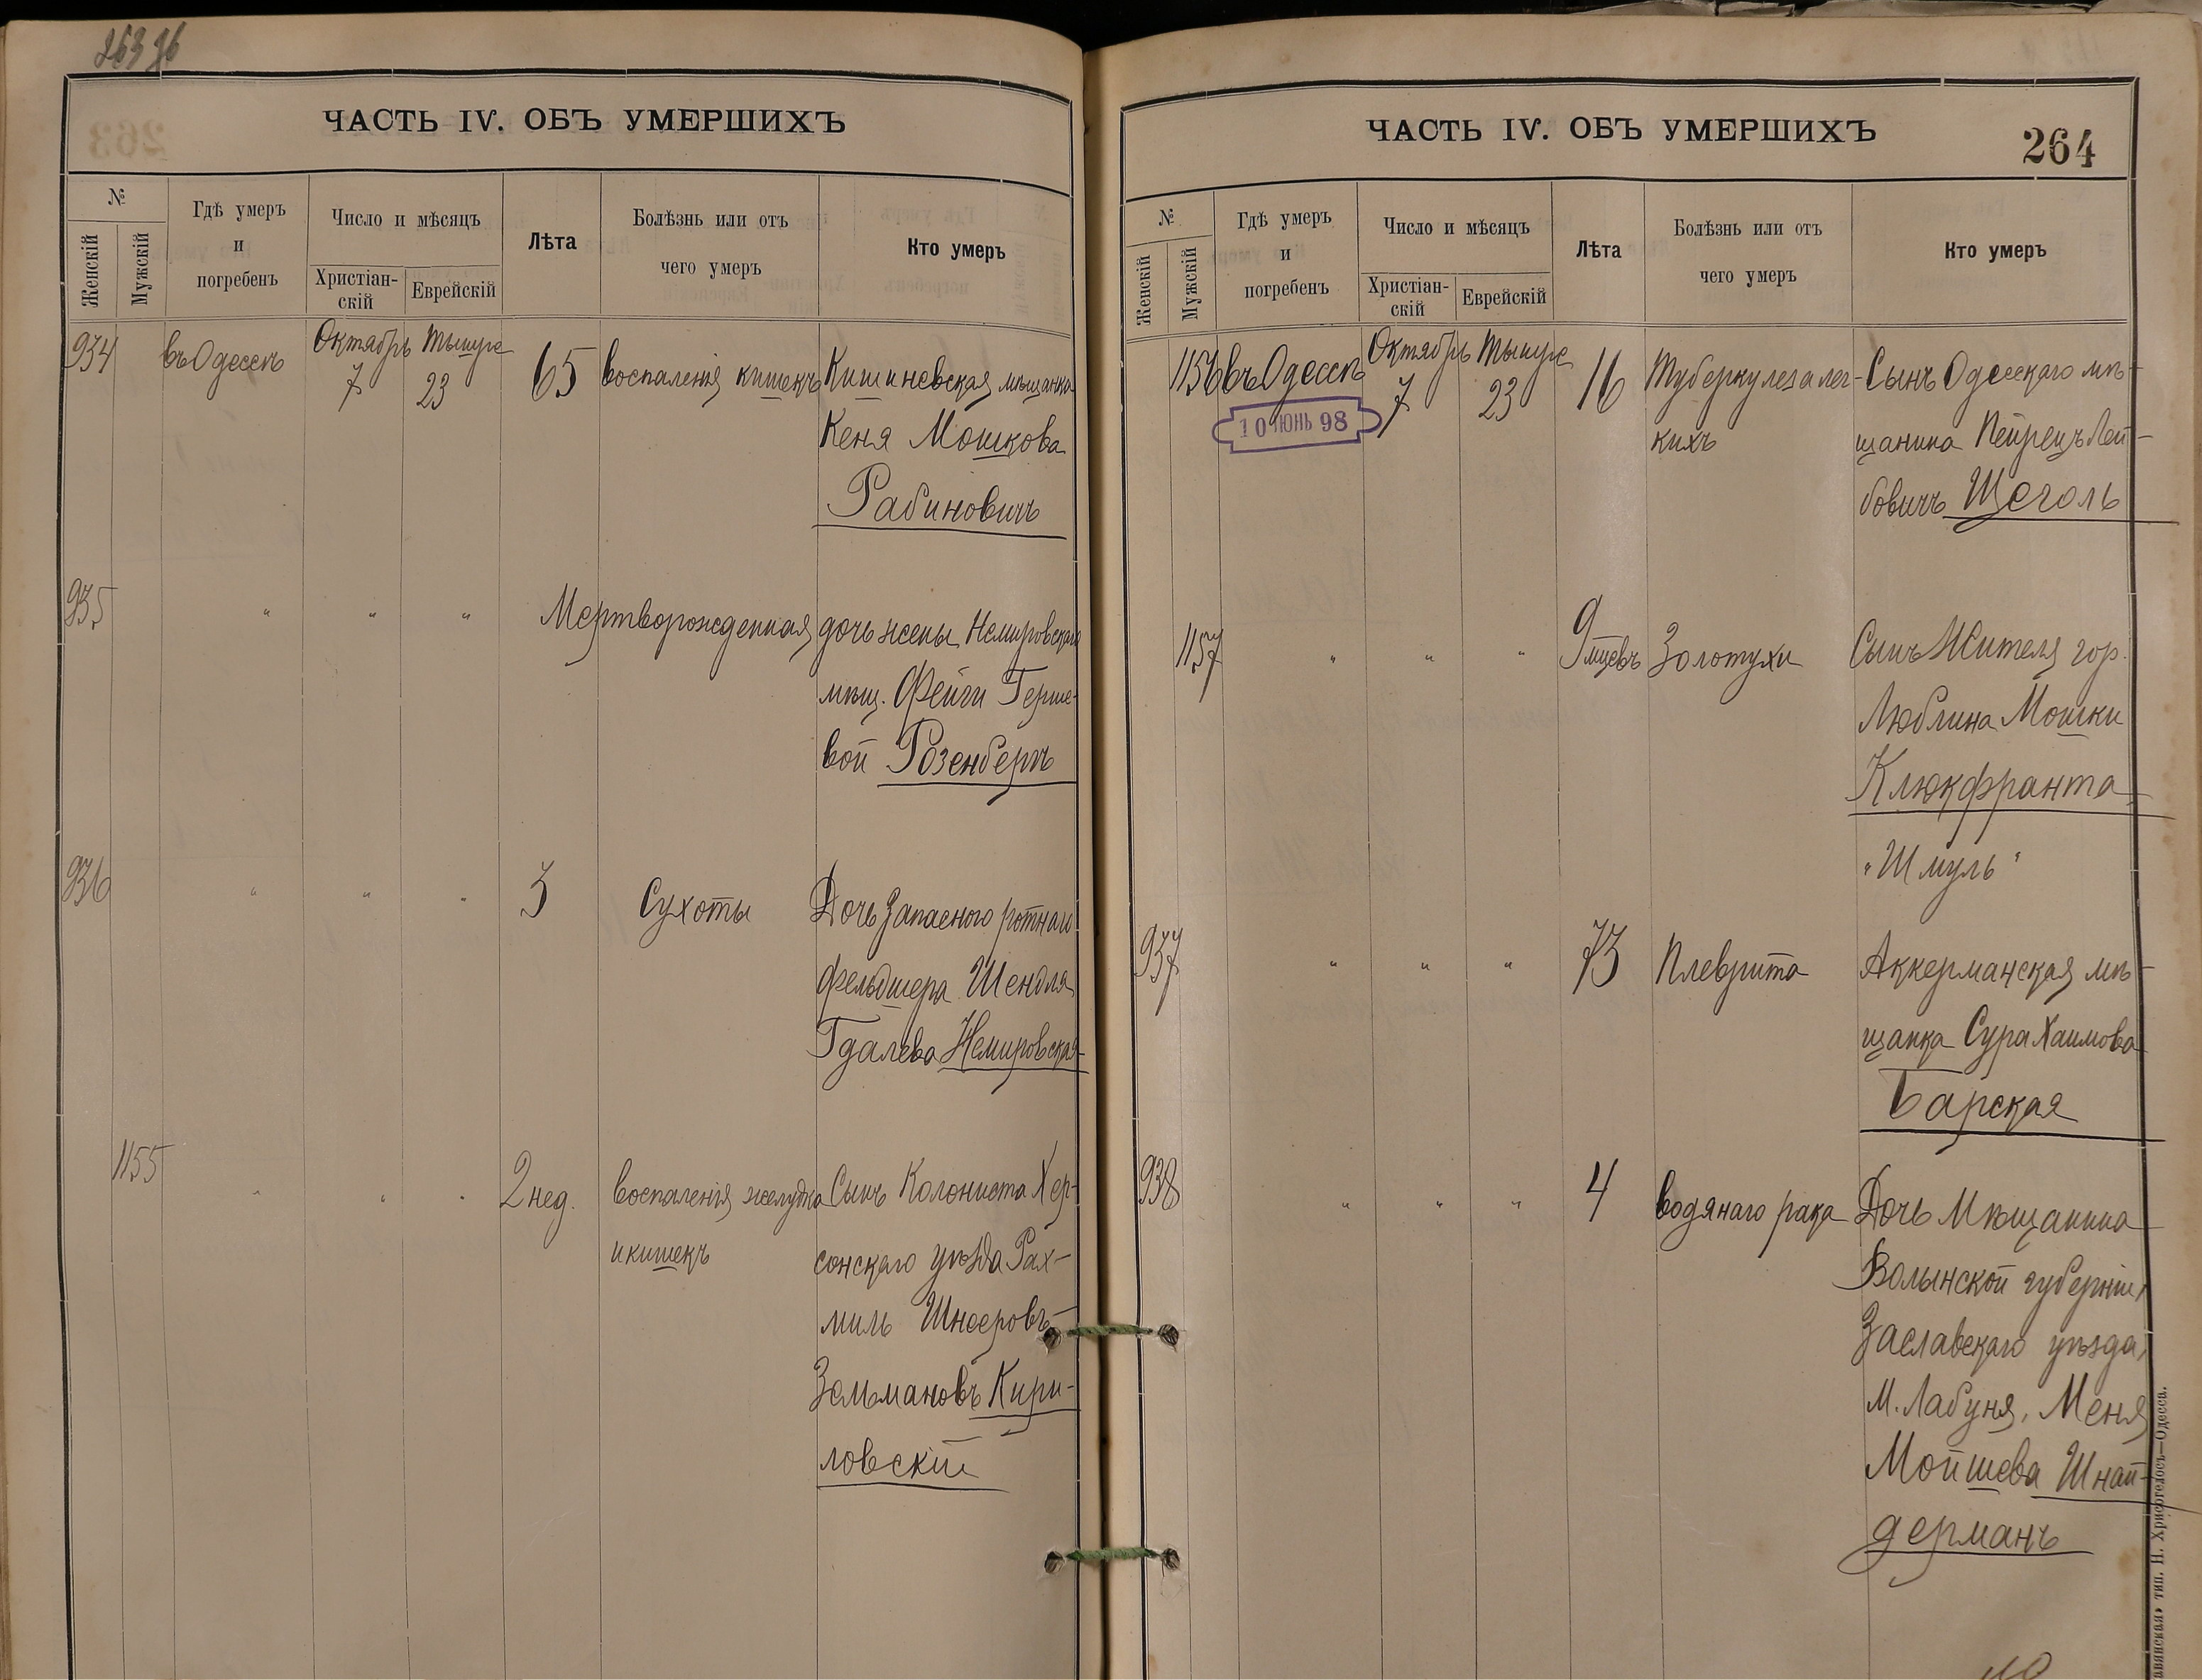 ЧАСТЬ IV. ОБЪ УМЕРШИХЪ
№
Женскій
Мужскій
Гдѣ умеръ
и
погребенъ
Число и мѣсяцъ
Христіан-
скій
Еврейскій
Лѣта
Болѣзнь или отъ
чего умеръ
Кто умеръ
934
въ Одессѣ
Октябрь
7
Тышре
23
65
воспаленія кишекъ
Кишиневская мѣщанка
Кеня Мошкова
Рабиновичъ
935
" " "
Мертворожденная
дочь жены Немировскаго
мѣщ. Фейги Герше-
вой Розенбергъ
936
" " "
3
Сухоты
Дочь Запасного ротнаго
фельдшера Шендля
Гдалева Немировская
1155
" " "
2 нед.
воспаленія желудка
и кишекъ
Сынъ Колониста Хер-
сонскаго уѣзда Рах-
миль Шнееровъ-
Зельмановъ Кири-
ловскій
ЧАСТЬ IV. ОБЪ УМЕРШИХЪ
264
№
Женскій
Мужскій
Гдѣ умеръ
и
погребенъ
Число и мѣсяцъ
Христіан-
скій
Еврейскій
Лѣта
Болѣзнь или отъ
чего умеръ
Кто умеръ
1156
въ Одессѣ
10 ІЮНЬ 98
Октябрь
7
Тышре
23
16
Туберкулеза лег-
кихъ
Сынъ Одесскаго мѣ-
щанина Пейрецъ Лей-
бовичъ Щеголь
1157
" " "
9 мцевъ
Золотухи
Сынъ Жителя гор.
Люблина Мошки
Клюкфранта
"Шмуль"
937
" " "
73
Плеврита
Аккерманская мѣ-
щанка Сура Хаимова
Барская
938
" " "
4
водянаго рака
Дочь Мѣщанина
Волынской губерніи,
Заславскаго уѣзда,
М. Лабуня, Меня
Мойшева Шнай-
дерманъ
тип. Н. Хрисогелосъ—Одесса.